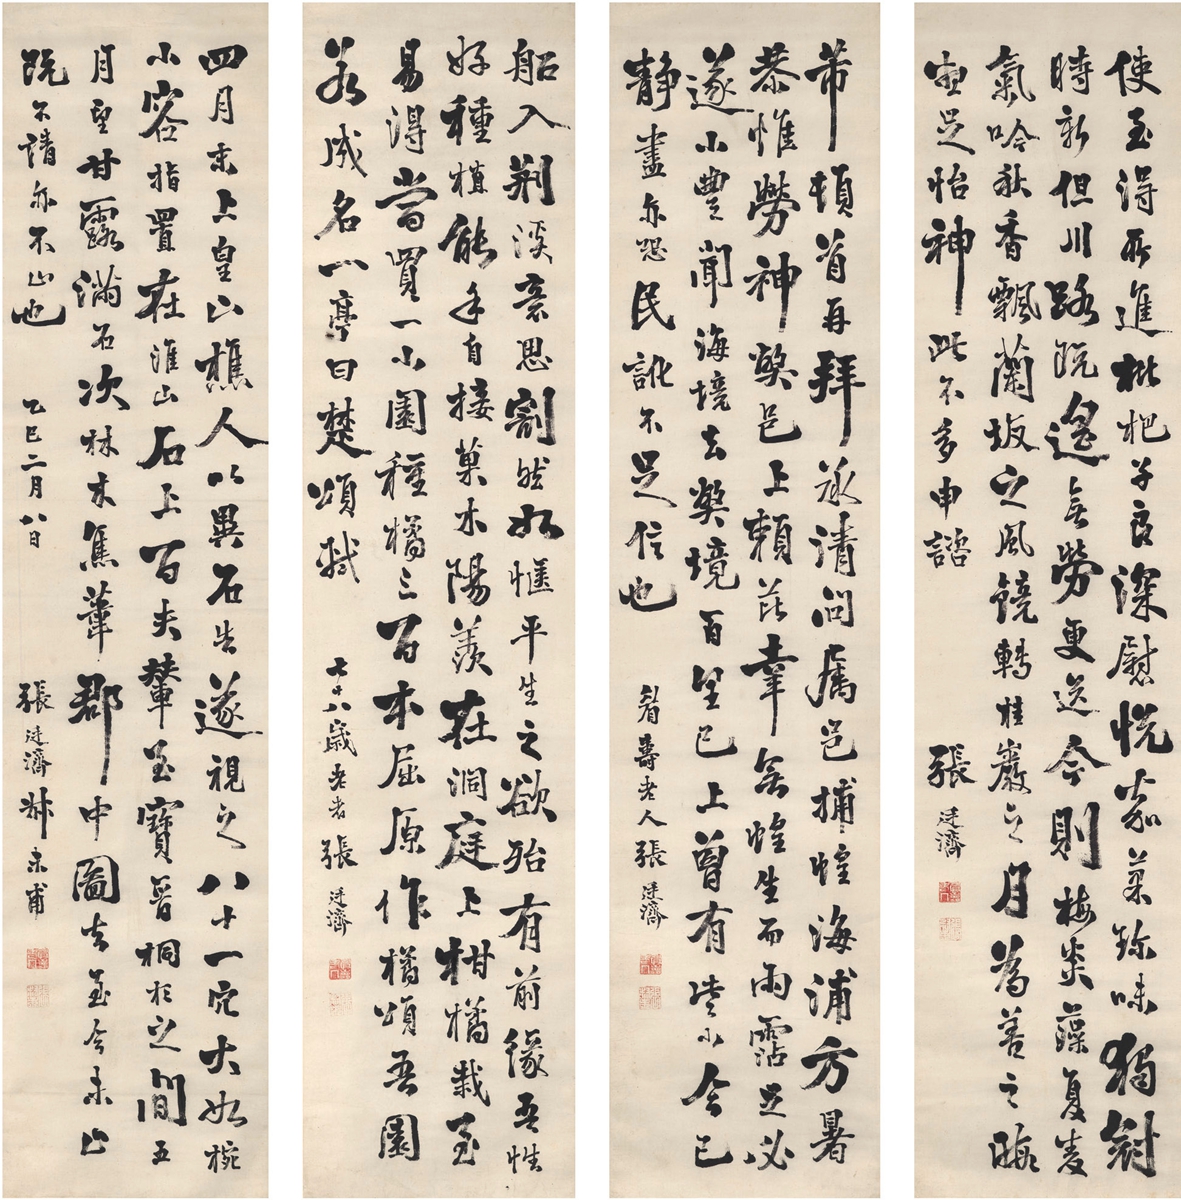 使至得所進枇杷子良深慰悦嘉菓珍味獨對
時新但川路既遥無勞更送今則梅炎藻夏麦
氣吟秋香飄蘭坂之風鏡轉桂巖之月為善之暇
宜足怡神此不多申誥
張廷濟
芾頓首再拜承清問属邑捕蝗海浦方暑
恭惟勞神弊邑上賴芘幸無蝗生而雨霑足必
遂小豐聞海境去弊境百里已上曾有些小今已
静盡亦恐民訛不足信也
眉壽老人張廷濟
船入荆溪意思割然如愜平生之欲殆有前缘吾性
好種植能手自接菓木陽羨在洞庭上柑橘栽至
易得當買一小園種橘三百本屈原作橘頌吾園
若成名一亭曰楚頌軾
七十八歲老者張廷濟
四月末上皇山樵人以異石告遂視之八十一穴大如椀
小容指置在淮山石上百夫輦至寶晉桐杉之間五
月望甘露滿石次林木焦葦郡中圖去至今未止
既不請亦不止也
乙巳二月八日
張廷濟叔未甫